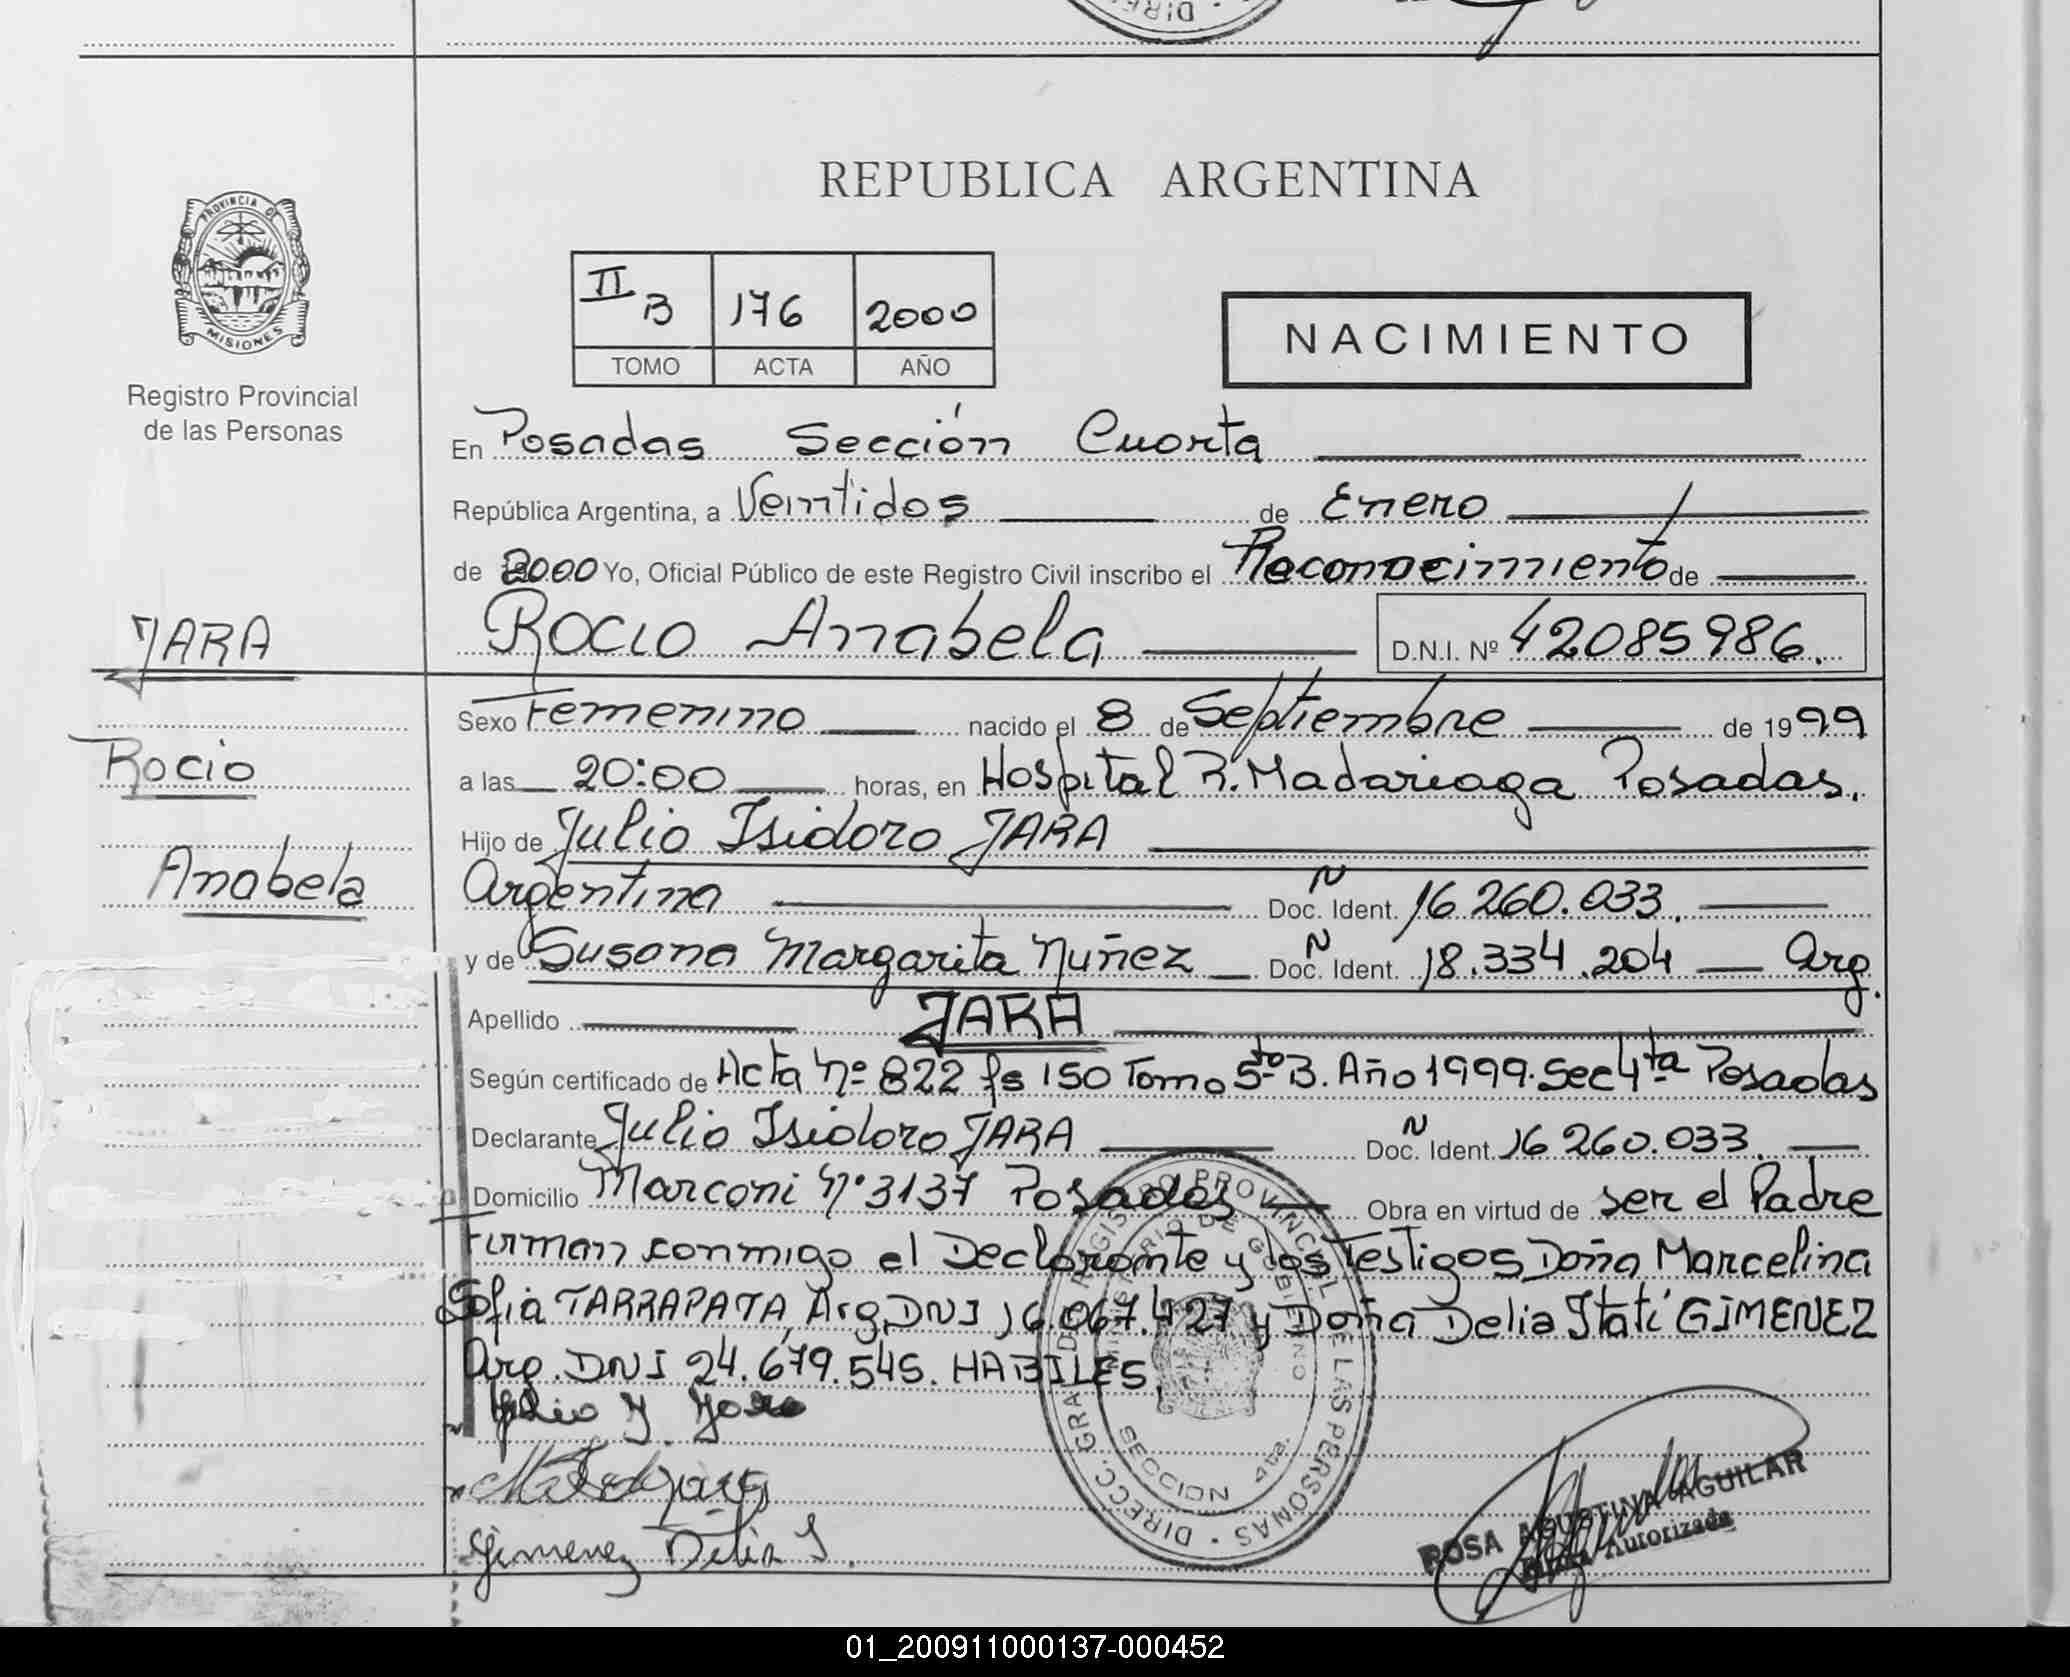 REPUBLICA ARGENTINA
PROVINCIA DE
MISIONES
Registro Provincial
de las Personas
II B 176 2000
TOMO ACTA AÑO
NACIMIENTO
En Posadas Sección Cuarta
República Argentina, a Veintidos de Enero
de 2000 Yo, Oficial Público de este Registro Civil inscribo el Reconocimiento de
JARA
Rocio
Anabela
ROCIO Anabela D.N.I. Nº 42085986.
Sexo Femenino nacido el 8 de Septiembre de 1999
a las 20:00 horas, en Hospital R. Madariaga Posadas.
Hijo de Julio Isidoro JARA
Argentina Doc. N Ident. 16.260.033.
y de Susana Margarita Nuñez Doc. N Ident. 18.334.204 Arg.
Apellido JARA
Según certificado de Acta Nº 822 fs 150 Tomo 5to B. Año 1999. Sec 4ta Posadas
Declarante Julio Isidoro JARA Doc. N Ident. 16.260.033.
Domicilio Marconi Nº 3137 Posadas Obra en virtud de ser el Padre
Firman conmigo el Declarante y los Testigos Doña Marcelina
Sofia TARRAPATA, Arg. DNI 16.067.427 y Doña Delia Itatí GIMENEZ
Arg. DNI 24.679.545. HABILES.
Julio I. Jara
Gimenez Delia I.
DIRECC. GRAL. DE REGISTRO PROVINCIAL DE LAS PERSONAS
MINISTERIO DE GOBIERNO
SECCION 4ta.
ROSA AGUSTINA AGUILAR
Firma Autorizada
01_200911000137-000452